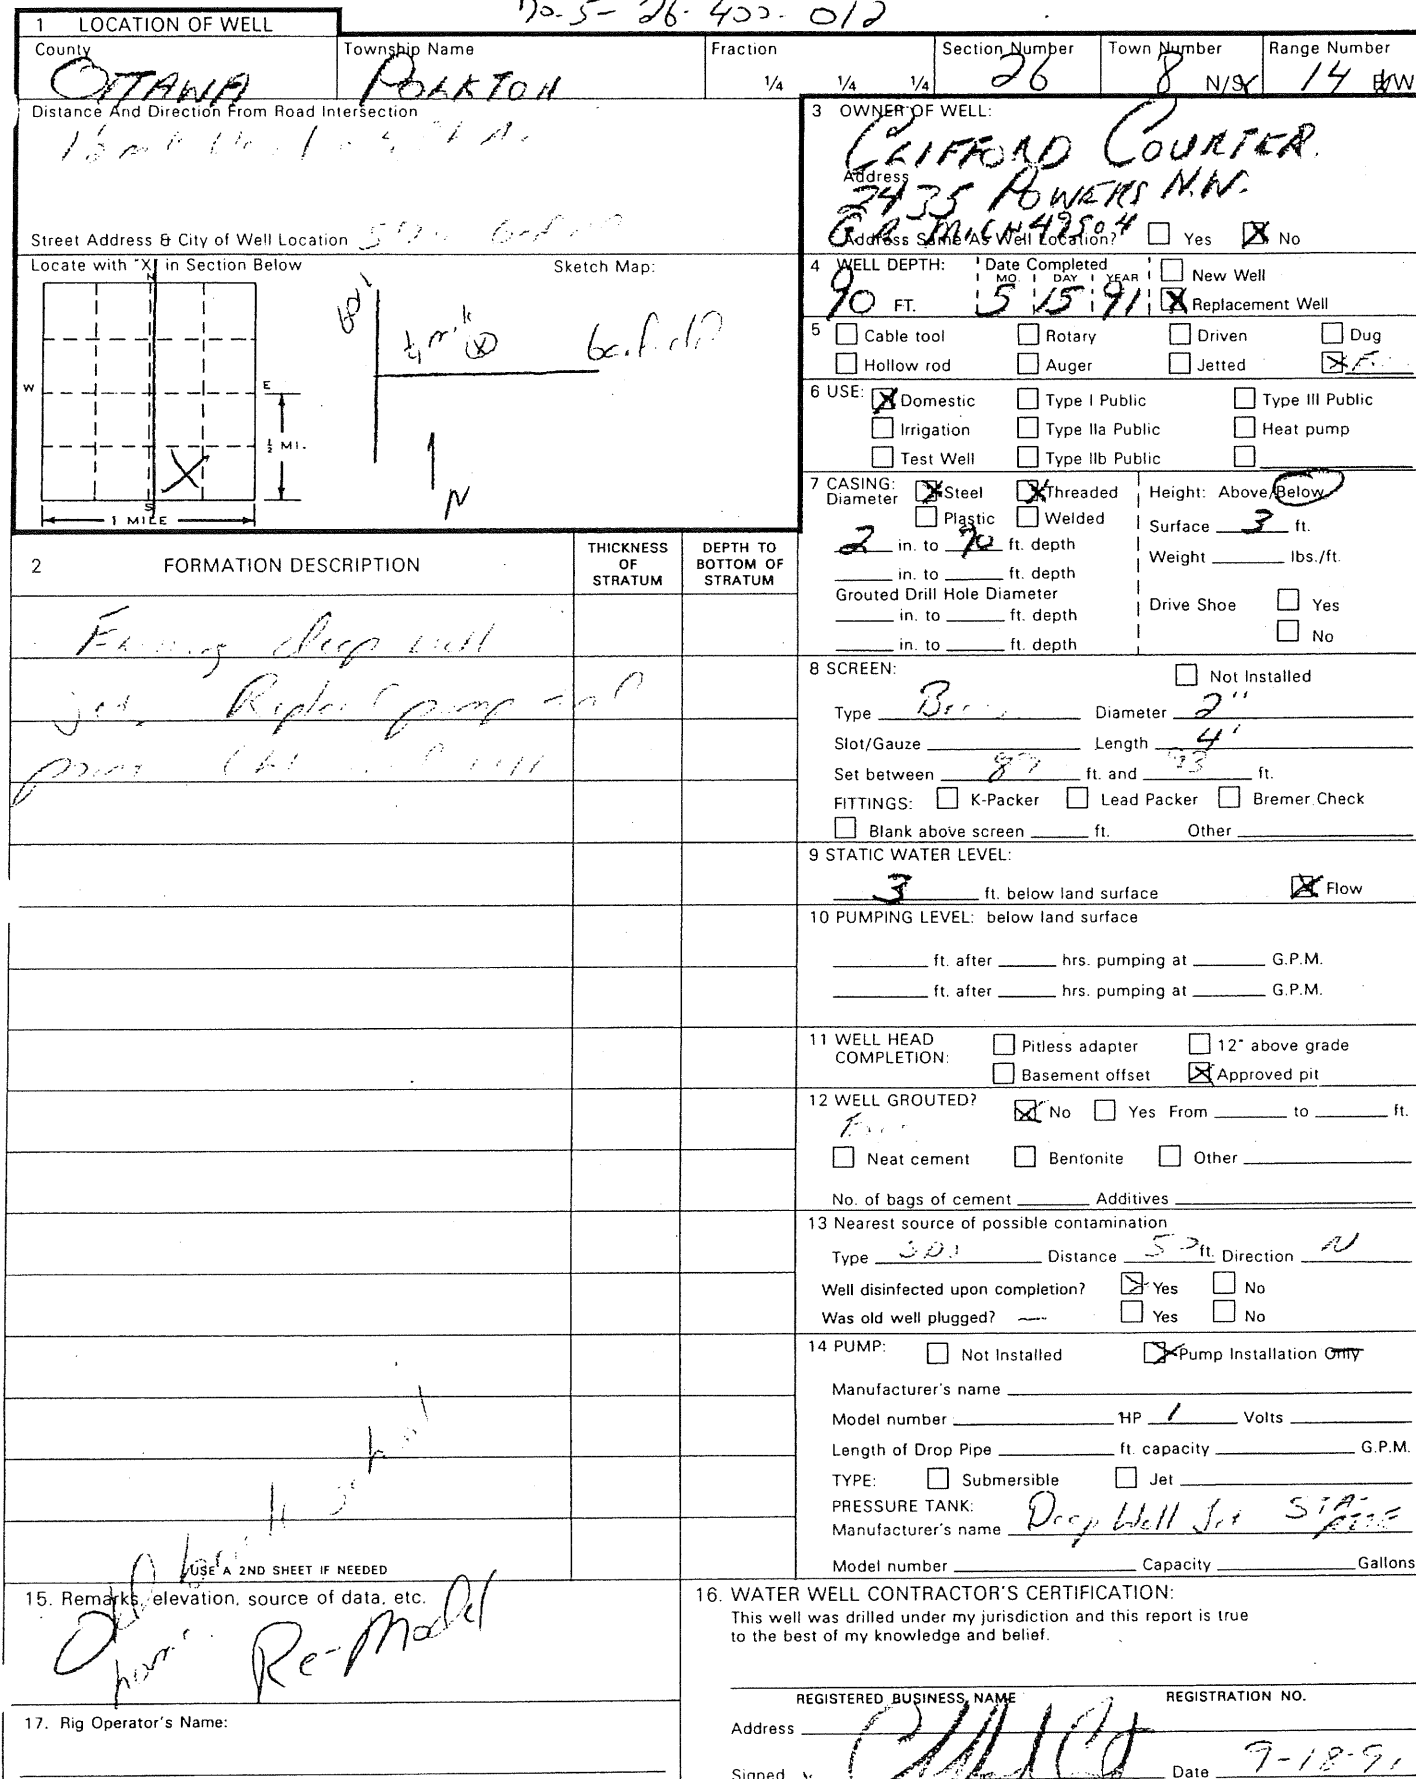 70-5-26-400-012
1 LOCATION OF WELL
County OTTAWA
Township Name POLKTON
Fraction 1/4 1/4 1/4
Section Number 26
Town Number 8 N/S
Range Number 14 E/W
Distance And Direction From Road Intersection
Street Address & City of Well Location
Locate with "X" in Section Below
Sketch Map:
N
W
E
S
1/2 MI.
1 MILE
X
1/4 mile
N
3 OWNER OF WELL:
CLIFFORD COURTER.
Address
2435 POWERS N.W.
G.R. MICH 49504
Address Same As Well Location? Yes X No
4 WELL DEPTH: 90 FT.
Date Completed
MO. DAY YEAR
5 15 91
New Well
X Replacement Well
5 Cable tool Rotary Driven Dug
Hollow rod Auger Jetted X
6 USE: X Domestic Type I Public Type III Public
Irrigation Type IIa Public Heat pump
Test Well Type IIb Public
7 CASING: X Steel X Threaded
Diameter Plastic Welded
2 in. to 90 ft. depth
in. to ft. depth
Grouted Drill Hole Diameter
in. to ft. depth
in. to ft. depth
Height: Above/Below
Surface 3 ft.
Weight lbs./ft.
Drive Shoe Yes
No
2 FORMATION DESCRIPTION
THICKNESS OF STRATUM
DEPTH TO BOTTOM OF STRATUM
deep well
jet. pump and
8 SCREEN: Not Installed
Type Diameter 2"
Slot/Gauze Length 4'
Set between ft. and ft.
FITTINGS: K-Packer Lead Packer Bremer Check
Blank above screen ft. Other
9 STATIC WATER LEVEL:
3 ft. below land surface X Flow
10 PUMPING LEVEL: below land surface
ft. after hrs. pumping at G.P.M.
ft. after hrs. pumping at G.P.M.
11 WELL HEAD COMPLETION: Pitless adapter 12" above grade
Basement offset X Approved pit
12 WELL GROUTED? X No Yes From to ft.
Neat cement Bentonite Other
No. of bags of cement Additives
13 Nearest source of possible contamination
Type Distance 50 ft. Direction N
Well disinfected upon completion? X Yes No
Was old well plugged? Yes No
14 PUMP: Not Installed X Pump Installation Only
Manufacturer's name
Model number HP 1 Volts
Length of Drop Pipe ft. capacity G.P.M.
TYPE: Submersible Jet
PRESSURE TANK:
Manufacturer's name Deep Well Jet STA-RITE
Model number Capacity Gallons
USE A 2ND SHEET IF NEEDED
15. Remarks, elevation, source of data, etc.
Old
Re-Model
16. WATER WELL CONTRACTOR'S CERTIFICATION:
This well was drilled under my jurisdiction and this report is true
to the best of my knowledge and belief.
REGISTERED BUSINESS NAME REGISTRATION NO.
Address
Signed Date 9-18-91
17. Rig Operator's Name: